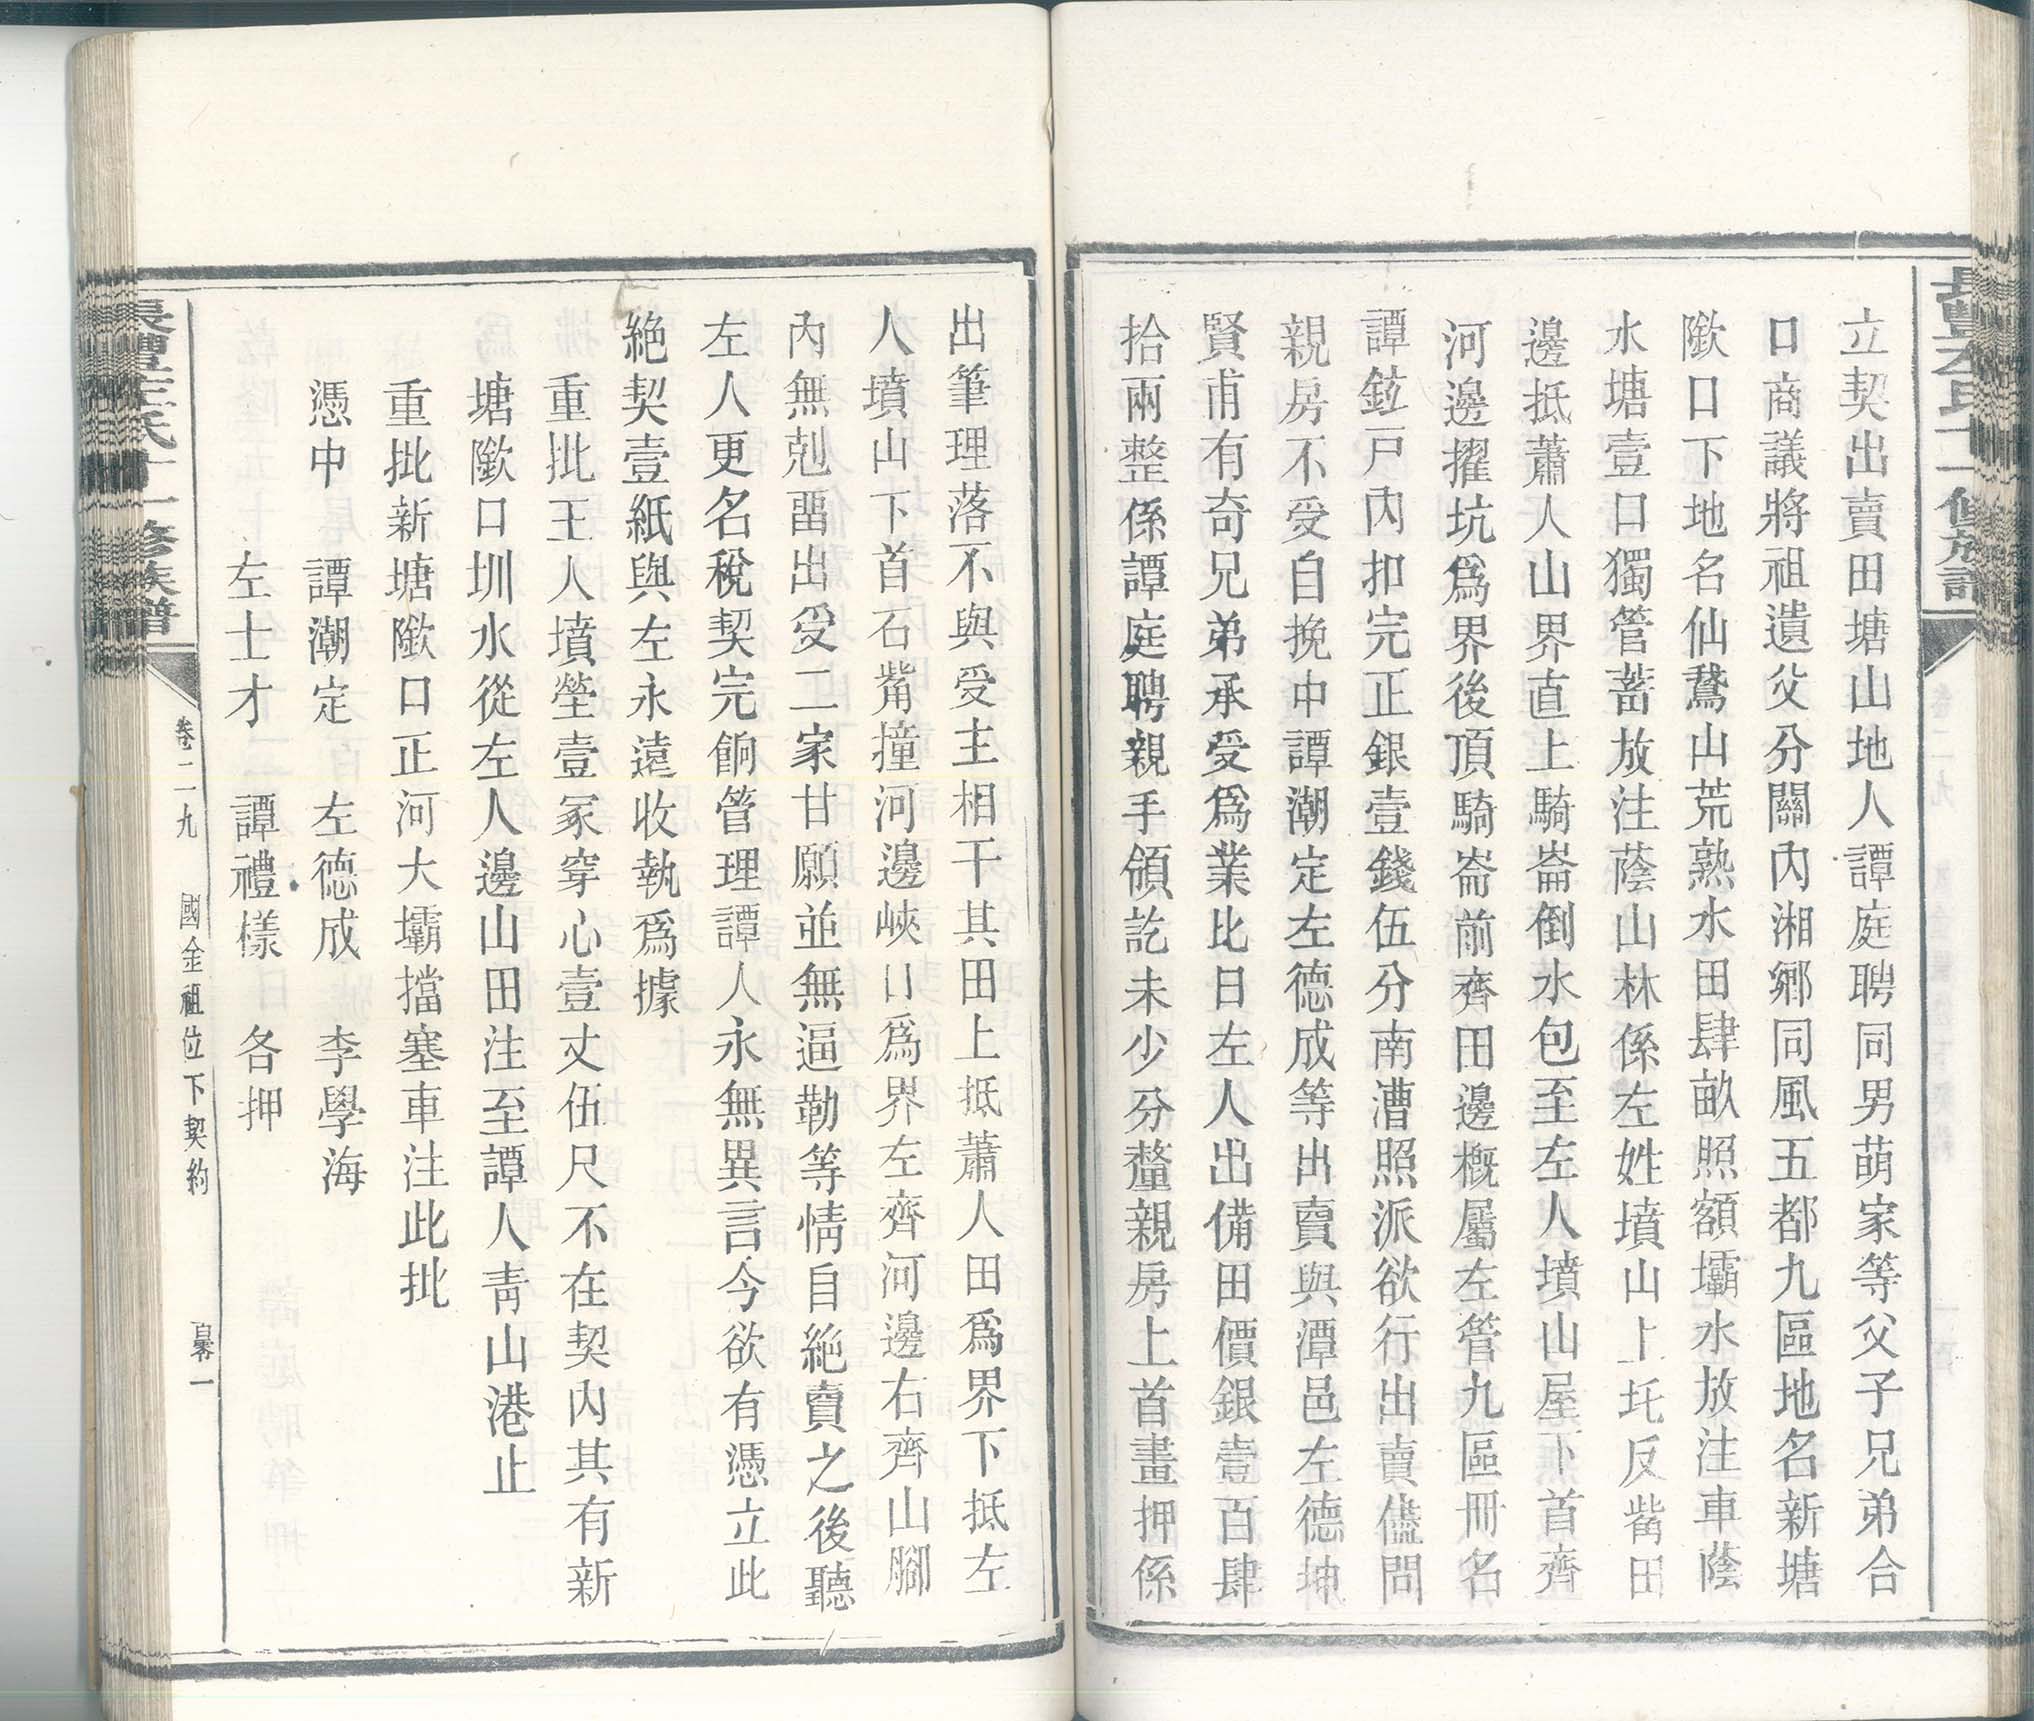 立契出賣田塘山地人譚庭聘同男萌家等父子兄弟合
口商議將祖遺父分關內湘鄉同風五都九區地名新塘
歘口下地名仙鵞山荒熟水田肆畝照額壩水放注車蔭
水塘壹口獨管蓄放注蔭山林係左姓墳山上圫反觜田
邊抵蕭人山界直上騎崙倒水包至左人墳山屋下首齊
河邊擢坑爲界後頂騎崙前齊田邊概屬左管九區冊名
譚鉝戸內扣完正銀壹錢伍分南漕照派欲行出賣儘問
親房不受自挽中譚潮定左德成等出賣與潭邑左德坤
賢甫有奇兄弟承受爲業比日左人出備田價銀壹百肆
拾兩整係譚庭聘親手領訖未少分釐親房上首畫押係
出筆理落不與受主相干其田上抵蕭人田爲界下抵左
人墳山下首石觜撞河邊峽口爲界左齊河邊右齊山腳
內無剋畱出受二家甘願並無逼勒等情自絶賣之後聽
左人更名稅契完餉管理譚人永無異言今欲有憑立此
絶契壹紙與左永遠收執爲據
重批王人墳塋壹冢穿心壹丈伍尺不在契內其有新
塘歘口圳水從左人邊山田注至譚人靑山港止
重批新塘歘口正河大壩擋塞車注此批
憑中 譚潮定 左德成 李學海
左士才 譚禮樣 各押
卷二九 國金祖位下契約 百零一
左氏十一修族譜